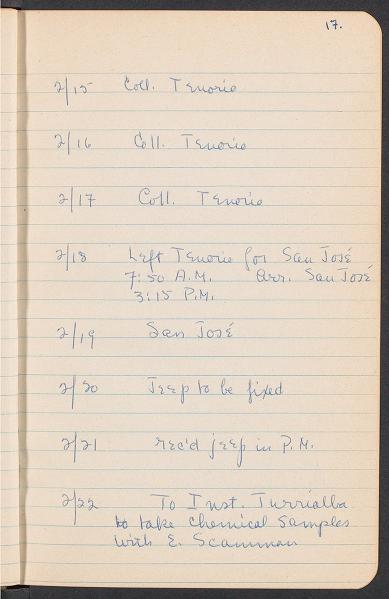 17.
2/15 Coll. Tenorio
2/16 Coll. Tenorio
2/17 Coll. Tenorio
2/18 Left Tenorio for San José
7:50 A.M. Arr. San José
3:15 P.M.
2/19 San José
2/20 Jeep to be fixed
2/21 rec'd jeep in P.M.
2/22 To Inst. Turrialba
to take chemical samples
with E. Scamman